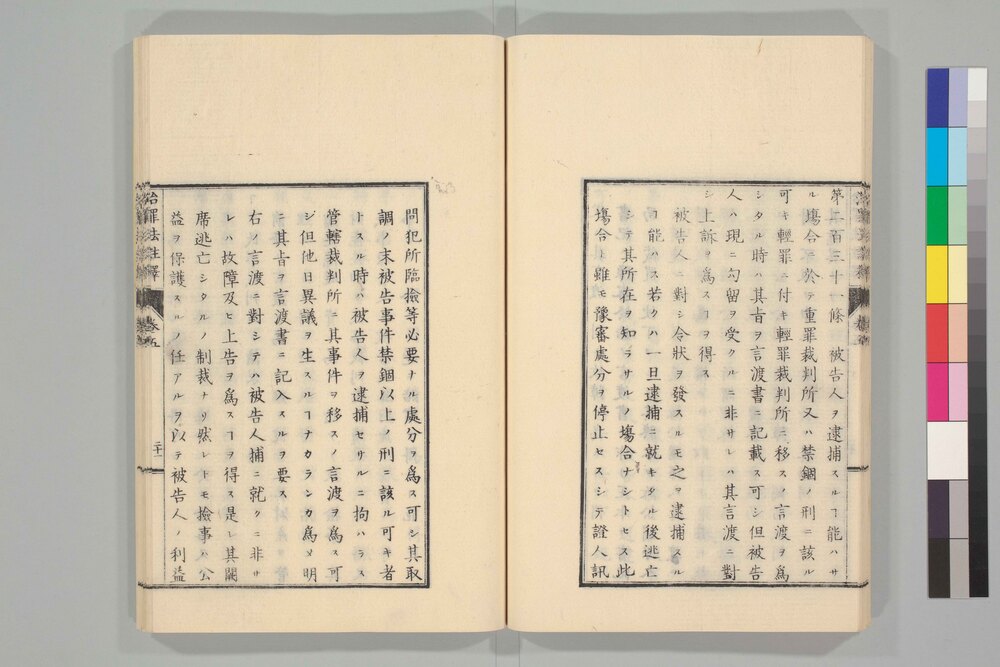 第二百三十一條 被告人ヲ逮捕スルヿ能ハサ
ル塲合ニ於テ重罪裁判所又ハ禁錮ノ刑ニ該ル
可キ輕罪ニ付キ輕罪裁判所ニ移スノ言渡ヲ爲
シタル時ハ其旨ヲ言渡書ニ記載ス可シ但被告
人ハ現ニ勾留ヲ受クルニ非サレハ其言渡ニ對
シ上訴ヲ爲スヿヲ得ス
被告人ニ對シ令狀ヲ發スルモ之ヲ逮捕スル
ヿ能ハス若クハ一旦逮捕ニ就キタル後逃亡
シテ其所在ヲ知ラサルノ塲合ナシトセス此
塲合ト雖モ豫審處分ヲ停止セスシテ證人訊
問犯所臨撿等必要ナル處分ヲ爲ス可シ其取
調ノ末被告事件禁錮以上ノ刑ニ該ル可キ者
トスル時ハ被告人ヲ逮捕セサルニ拘ハラス
管轄裁判所ニ其事件ヲ移スノ言渡ヲ爲ス可
シ但他日異議ヲ生スルヿナカランカ爲メ明
ニ其旨ヲ言渡書ニ記入スルヲ要ス
右ノ言渡ニ對シテハ被告人捕ニ就クニ非サ
レハ故障及ヒ上告ヲ爲スヿヲ得ス是レ其闕
席逃亡シタルノ制裁ナリ然レトモ撿事ハ公
益ヲ保護スルノ任アルヲ以テ被告人ノ利益
治罪法註釋
卷五
二十一